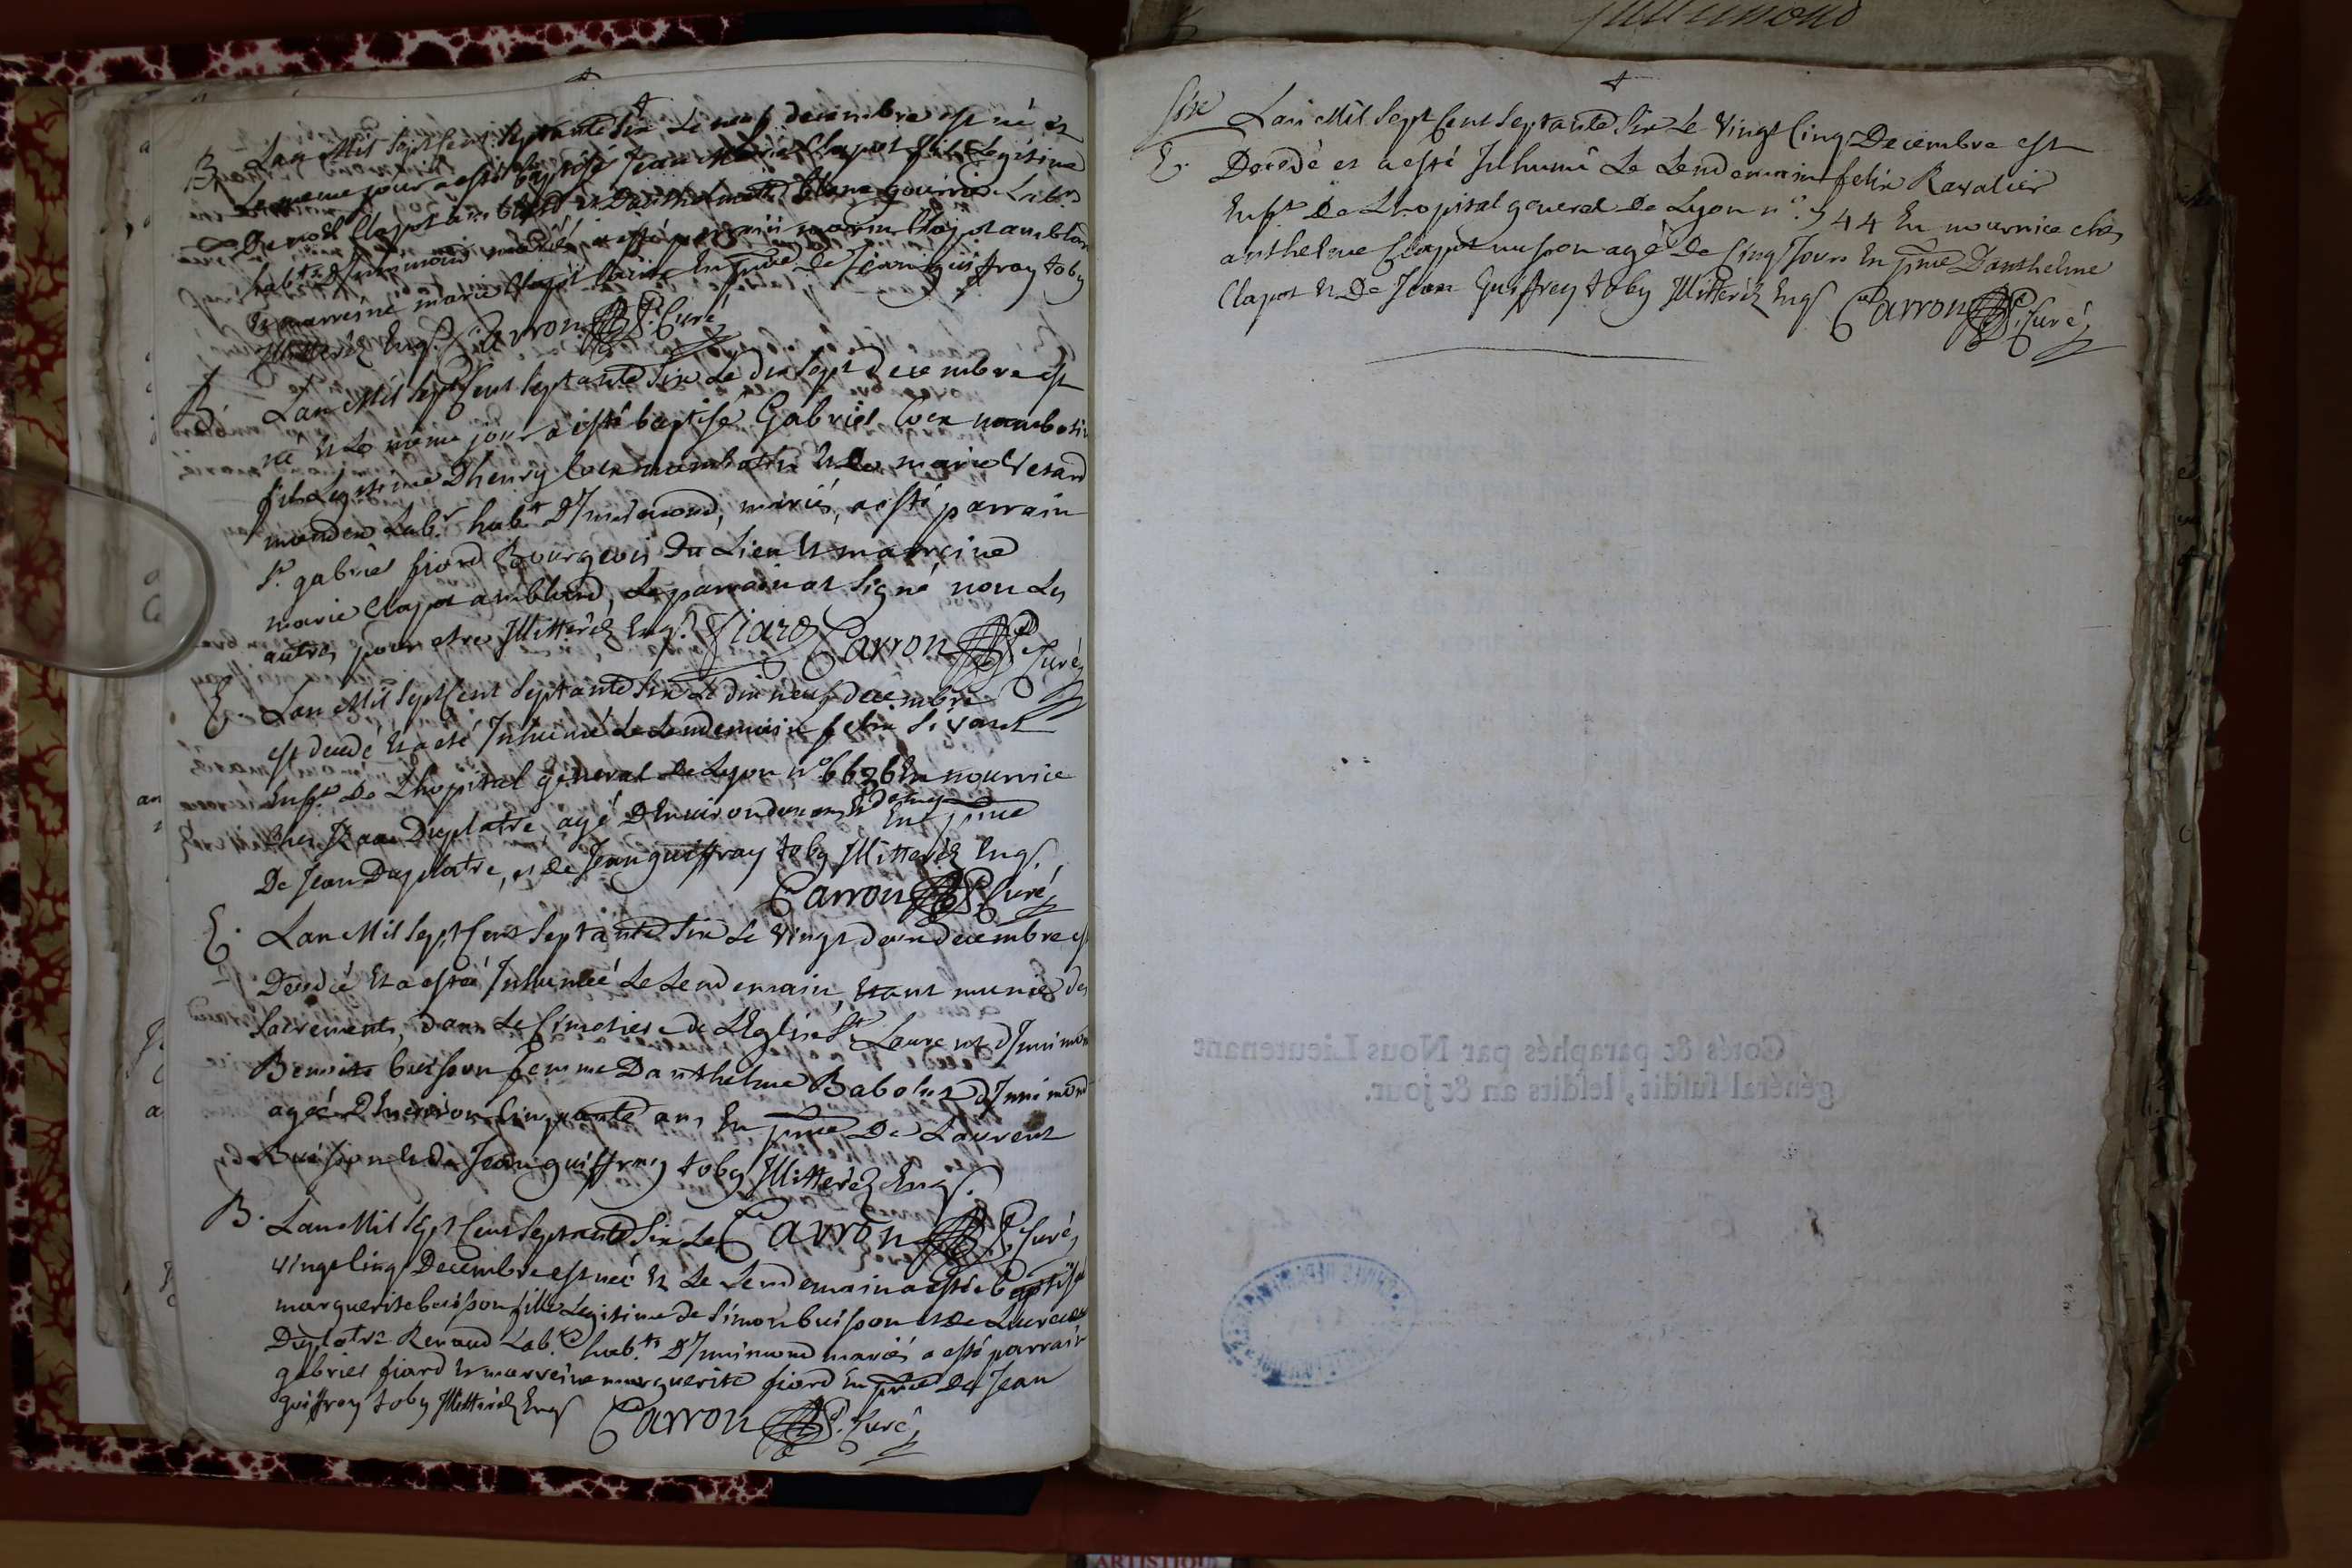 B. Lan Mil Sept Cent Septante Six Le neuf decembre est né et
Le meme jour a esté baptisé Jean Marie Clapot fils Legitime
De noel Clapot amblard et Danthelmette blanc gouvrie Labrs
habts Dinnimond mariés a esté parrain marin Clapot amblard
et marreine marie Clapot en pnce de Jean guiffray toby
Illitteréz Enqs. Carron P. Curé
B. Lan Mil Sept Cent Septante Six Le dix Sept decembre est
né et Le même jour a esté baptisé Gabriel
fils Legitime Dhenry et De marie
Labr. habt Dinnimond, mariés, a esté parrain
Sr. gabriel fiard Bourgeois Du Lieu et marreine
marie Clapot amblard, Le parrain at Signé non Les
autres pour etre Illitteréz Enqs. fiard Carron P. Curé
E. Lan Mil Sept Cent Septante Six Le dix neuf decembre
est decedé et a eté Inhumé Le Lendemain felix
Enft. De Lhopital géneral De Lyon no En nourrice
Ches Jean Duplatre, agé Denviron deux ans et demy En pnce
De Jean Duplatre, et de Jean guiffray toby Illitteréz Enqs.
Carron P. Curé
E. Lan Mil Sept Cent Septante Six Le vingt deux decembre est
Decedée et a estée Inhumée Le Lendemain, etant munie des
Sacrements, dans Le Cimetiere de LEglise St. Laurent dInnimond
Benoite buisson femme Danthelme Babolat dInnimond
agée Denviron Cinquante ans En pnce De Laurent
Buisson et de Jean guiffray toby Illitteréz Enqs.
Carron P. Curé
B. Lan Mil Sept Cent Septante Six Le
vingt Cinq Decembre est née et Le Lendemain a esté baptisée
marguerite buisson fille Legitime de Simon buisson et de Lucresse
Duplatre Renaud Labr. habts. DInnimond mariés a esté parrain
gabriel fiard et marreine marguerite fiard En pnce De Jean
guiffray toby Illitteréz Enqs Carron P. Curé
Six Lan Mil Sept Cent Septante Six Le Vingt Cinq Decembre est
E. Decedé et a esté Inhumé Le Lendemain felix Ravalier
Enft De Lhopital general De Lyon no. 744 En nourrice ches
anthelme Clapot agé De Cinq Jours En pnce Danthelme
Clapot et De Jean Guiffrey toby Illitteréz Enqs Carron P. Curé
Cotés & paraphés par Nous Lieutenant
général susdit, lesdits an & jour.